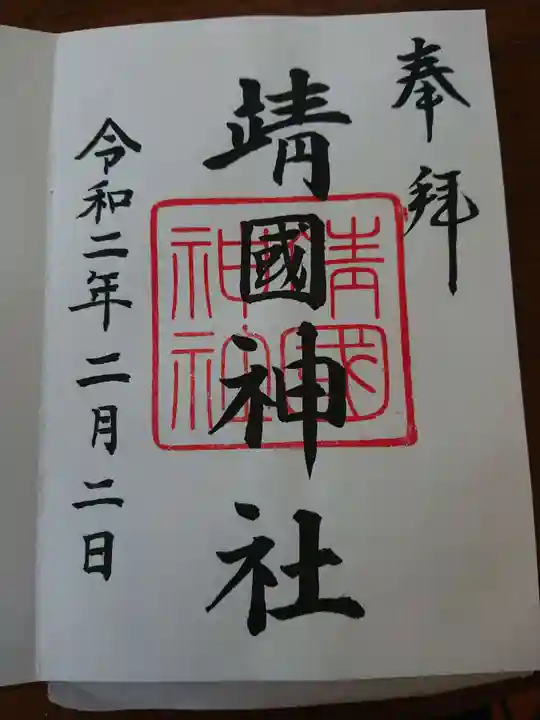 奉拝
靖國神社
靖國神社
令和二年二月二日